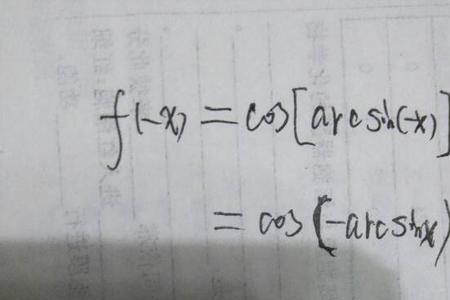 f(-x) = cos[arcsin(-x)]
= cos(-arcsinx)